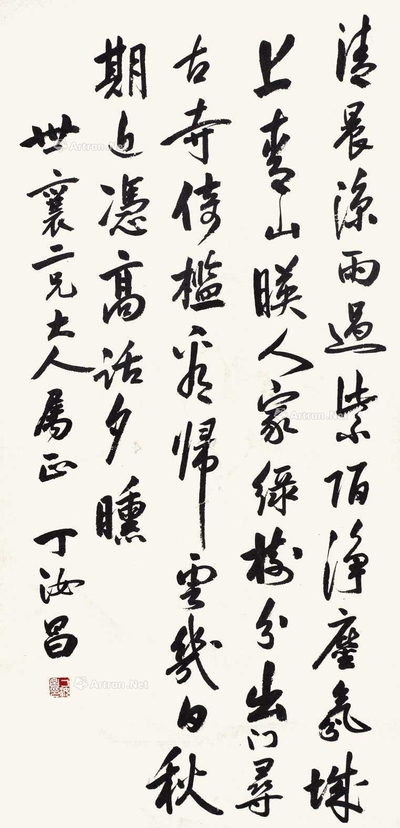 清晨涼雨過紫陌淨塵氛城
上青山暎人家綠樹分出門尋
古寺倚檻看歸雲幾日秋
期近憑高話夕曛
世襄二兄大人屬正 丁汝昌
Artron.Net
Artron.Net
Artron.Net